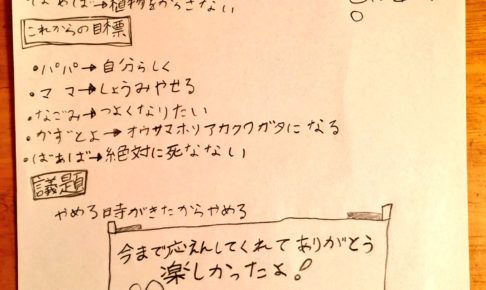 →植物をからさない
これからの目標
・パパ→自分らしく
・ママ→しょうみやせる
・なごみ→つよくなりたい
・かずとよ→オウサマホリアカクワガタになる
・ばあば→絶対に死なない
議題
やめる時がきたからやめる
今まで応えんしてくれてありがとう
楽しかったよ!